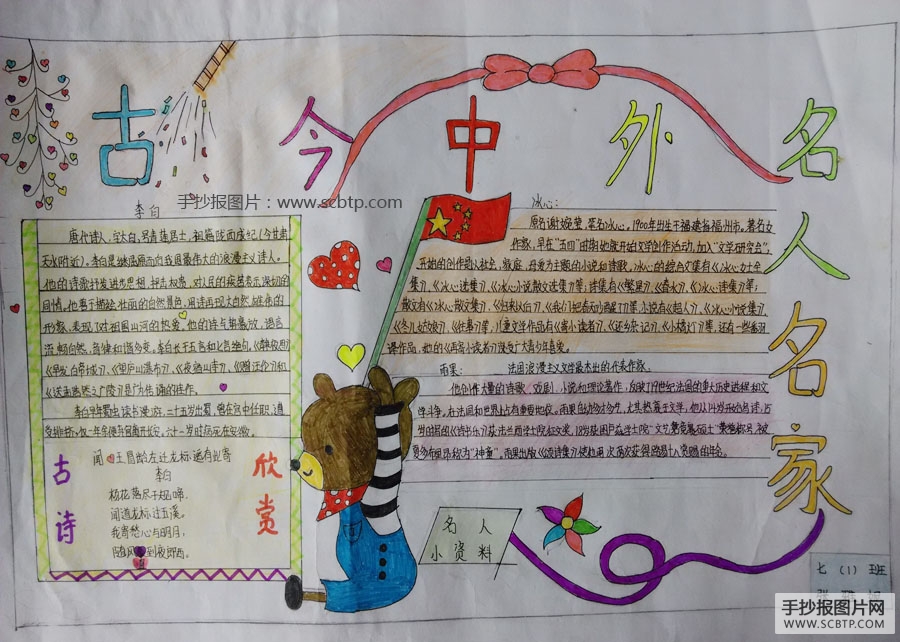 古今中外名人名家
手抄报图片：www.scbtp.com
李白
唐代诗人，字太白，号青莲居士，祖籍陇西成纪(今甘肃
天水附近)。李白是继屈原而后我国最伟大的浪漫主义诗人。
他的诗抒发进步思想，抨击权贵，对人民的疾苦表示深切的
同情，他善于描绘壮丽的自然景色，用诗再现大自然雄奇的
形象，表现了对祖国山河的热爱，他的诗与册豪放，语言
流畅自然，音律和谐多变。李白长于五言和七言绝句，《静夜思》
《早发白帝城》、《望庐山瀑布》、《夜宿山寺》、《赠汪伦》和
《送孟浩然之广陵》是广为传诵的佳作。
李白早年蜀中读书漫游，二十五岁出蜀，他在宫中任职，遭
受排挤，仅一年余便弃官离开长安。六十一岁时病死在安徽。
古诗
欣赏
闻王昌龄左迁龙标遥有此寄
李白
杨花落尽子规啼，
闻道龙标过五溪。
我寄愁心与明月，
随风到夜郎西。
冰心：
原名谢婉莹，笔名冰心。1900年出生于福建省福州市。著名女
作家，早在"五四"时期她就开始文学创作活动，加入"文学研究会"，
开始的创作是以社会，家庭，母爱为主题的小说和诗歌。冰心的综合文集有《冰心女士全
集》、《冰心选集》、《冰心小说散文选集》等，诗集有《繁星》、《春水》、《冰心诗集》等，
散文有《冰心散文集》、《归来以后》、《我们把春天吵醒了》等，小说有《超人》、《冰心小说集》、
《冬儿姑娘》、《往事》等，儿童文学作品有《寄小读者》、《还乡杂记》、《小桔灯》等，还有一些翻
译作品，她的《再寄小读者》深受广大青少年喜爱。
雨果：法国浪漫主义文学最杰出的代表作家。
他创作大量的诗歌、戏剧、小说和理论著作，反映了19世纪法国的重大历史进程和文
学斗争，在法国和世界上占有重要地位。
名人
小资料
七(1)班
手抄报图片网
WWW.SCBTP.COM